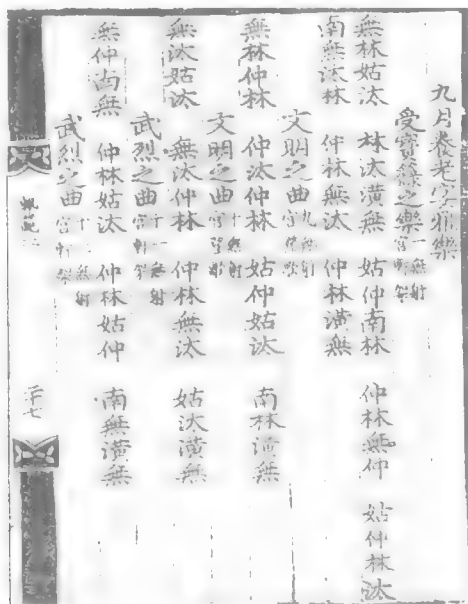 九月養老宴雅樂
受寶籙之樂 無射宮軒架
無林姑汰 林汰潢無 姑仲南林 仲林無仲 姑仲林汰
南無汰林 仲林無汰 仲林潢無
文明之曲 無射宮登歌
無林仲林 仲汰仲林 姑仲姑汰 南林潢無
文明之曲 十無射宮登歌
無汰姑汰 無汰仲林 仲林無汰 姑汰潢無
武烈之曲 十一無射宮軒架
無仲南無 仲林姑汰 仲林姑仲 南無潢無
武烈之曲 十二無射宮軒架
軌範二
卄七